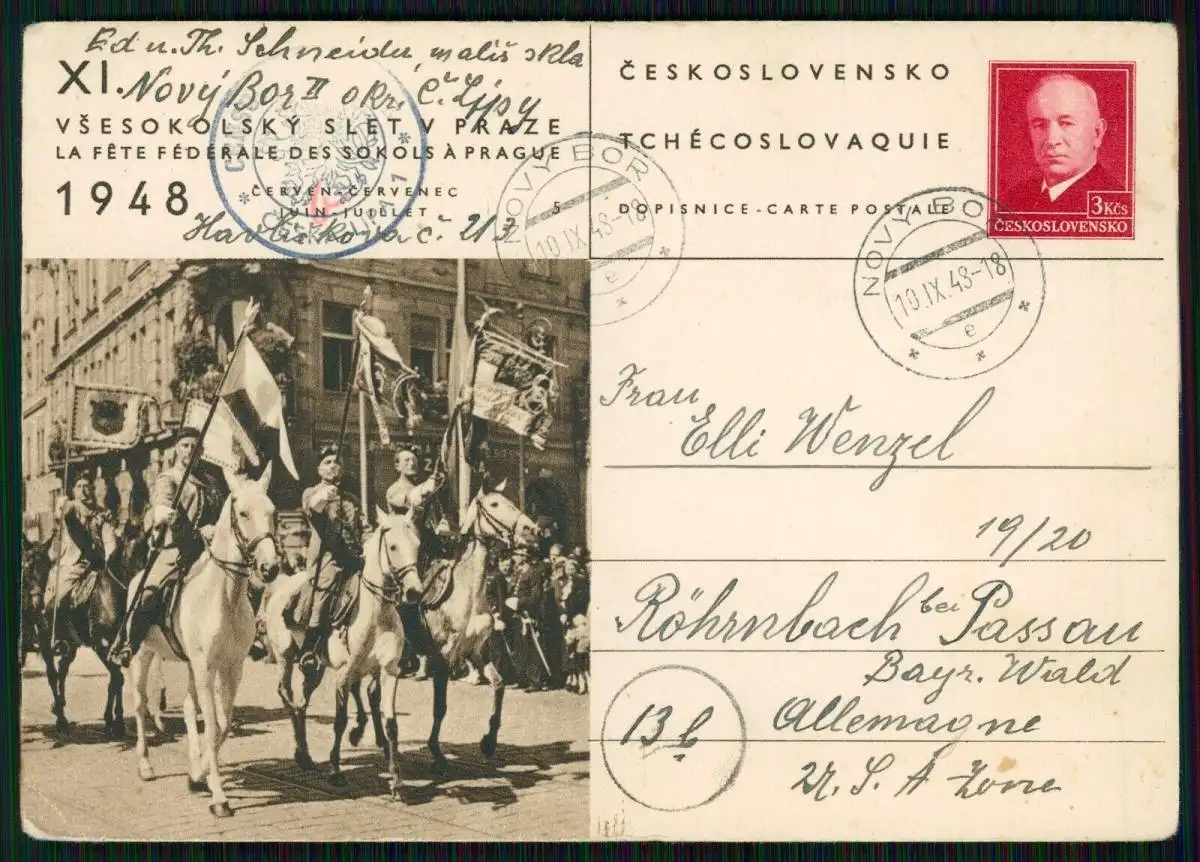 Ed u. Th. Schneider, malíš skla
XI. Nový Bor II okr. Č. Lípy
VŠESOKOLSKÝ SLET V PRAZE
LA FÊTE FÉDÉRALE DES SOKOLS À PRAGUE
1948
ČERVEN-ČERVENEC
JUIN-JUILLET
5
Havlíčkova č. 213
ČESKOSLOVENSKO
TCHÉCOSLOVAQUIE
DOPISNICE - CARTE POSTALE
3 Kčs
ČESKOSLOVENSKO
NOVÝ BOR
10.IX.48-18
e
NOVÝ BOR
10.IX.48-18
e
Frau
Elli Wenzel
19/20
Röhrnbach bei Passau
Bayr. Wald
Allemagne
U. S. A Zone
13b